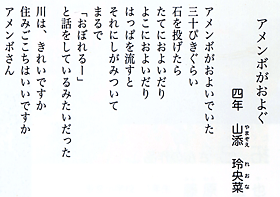 アメンボがおよぐ
四年　山添　玲央菜
やまぞえ　れおな
アメンボがおよいでいた
三十ぴきぐらい
石を投げたら
たてにおよいだり
よこにおよいだり
はっぱを流すと
それにしがみついて
まるで
「おぼれるー」
と話をしているみたいだった
川は、きれいですか
住みごこちはいいですか
アメンボさん